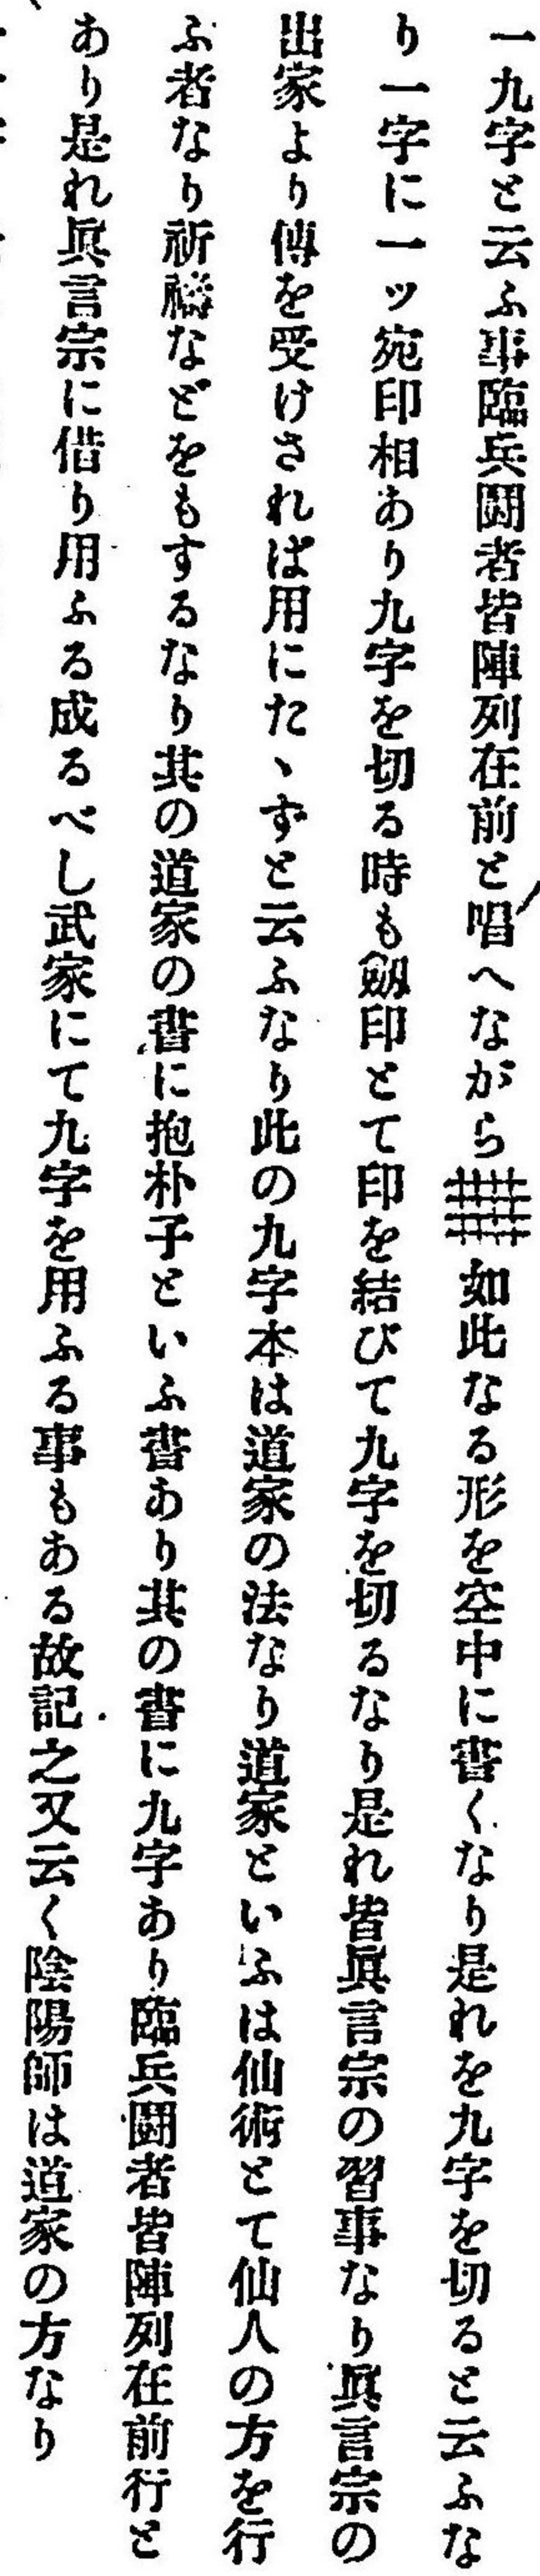 一九字と云ふ事臨兵鬪者皆陣列在前と唱へながら如此なる形を空中に書くなり是れを九字を切ると云ふな
り一字に一ッ宛印相あり九字を切る時も劔印とて印を結びて九字を切るなり是れ皆眞言宗の習事なり眞言宗の
出家より傳を受けされば用にたゝずと云ふなり此の九字本は道家の法なり道家といふは仙術とて仙人の方を行
ふ者なり祈禱などをもするなり其の道家の書に抱朴子といふ書あり其の書に九字あり臨兵鬪者皆陣列在前行と
あり是れ眞言宗に借り用ふる成るべし武家にて九字を用ふる事もある故記之又云く陰陽師は道家の方なり